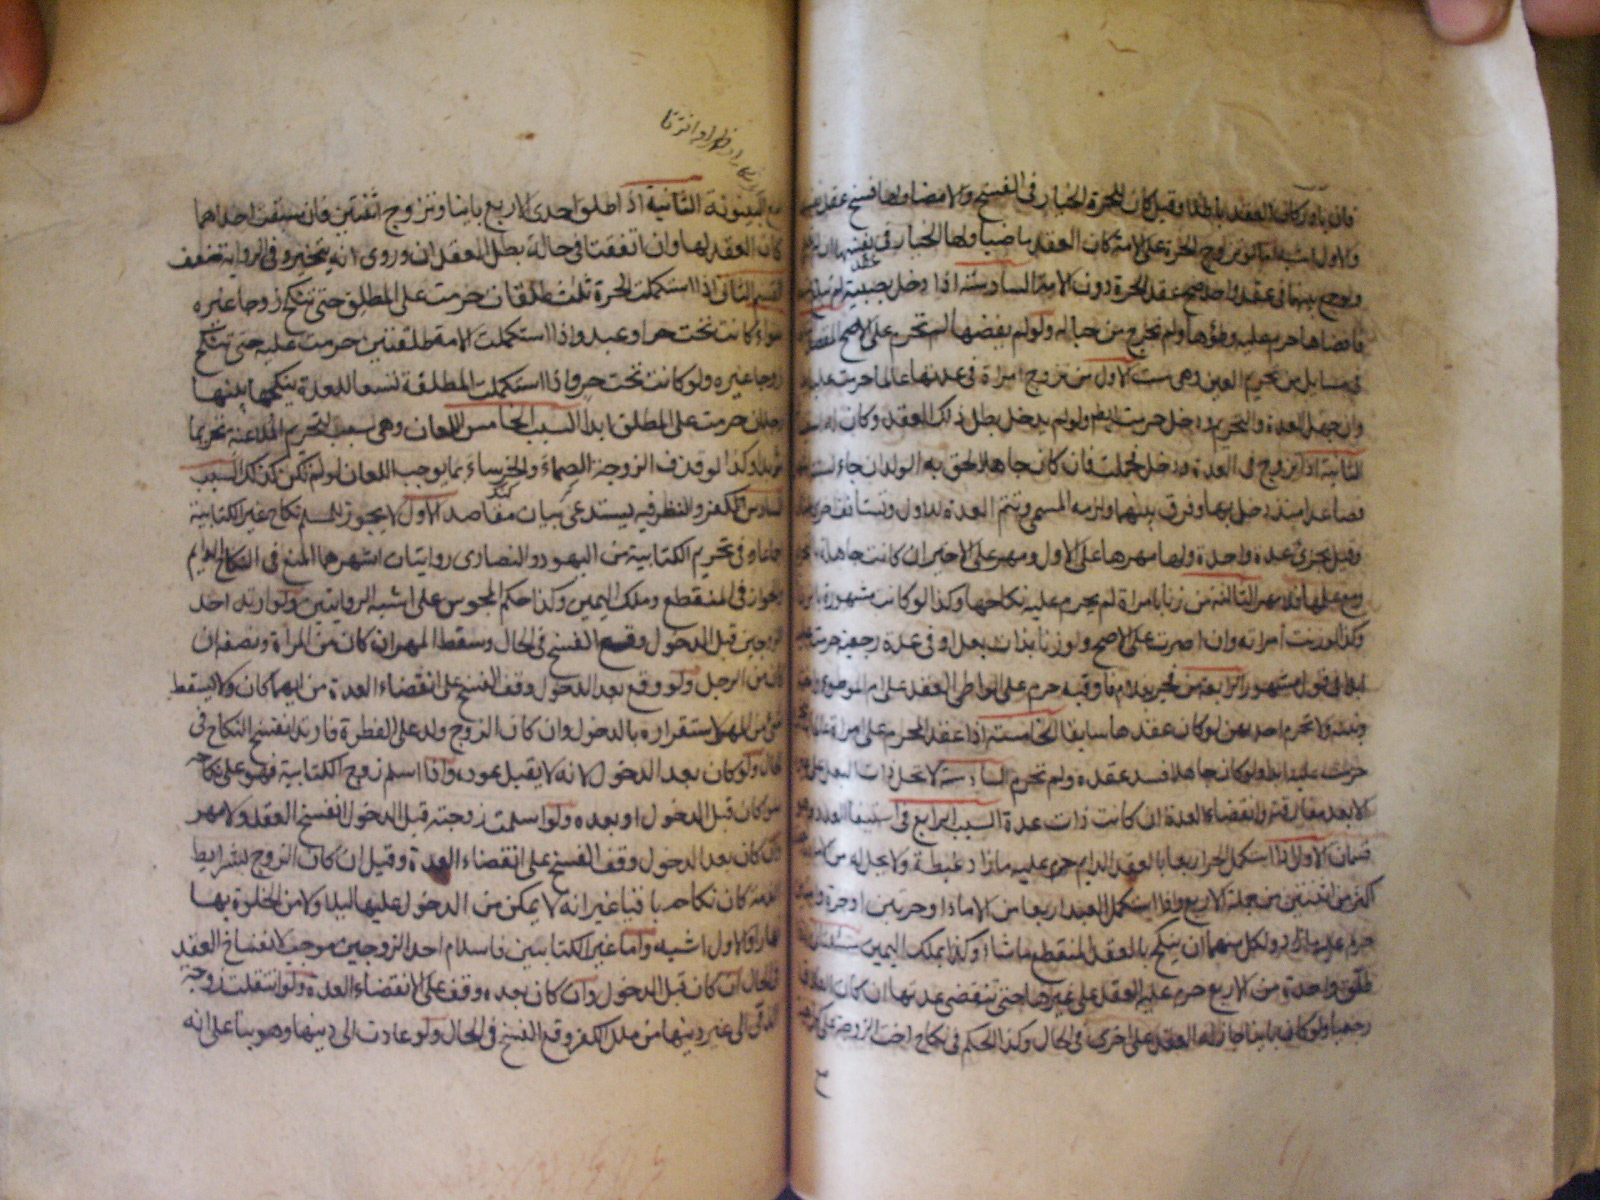 فان بادر كان العقد باطلا وقيل كان للحرة الخيار في الفسخ والامضاء ولها فسخ عقد
والاول اشبه اما لو تزوج الحرة على الامة كان العقد ماضيا ولها الخيار في نفسها ان لم
ولو جمع بينهما في عقد واحد صح عقد الحرة دون الامة السادسة اذا دخل بصبية لم تبلغ
فافضاها حرم عليه وطؤها ولم تخرج من حباله ولو لم يفضها لم تحرم على الاصح المقصد
في مسايل من تحريم العين وهي ست الاولى من تزوج امراة في عدتها عالما حرمت عليه
وان جهل العدة والتحريم ودخل حرمت ايضا ولو لم يدخل بطل ذلك العقد وكان له
الثانية اذا تزوج في العدة ودخل فحملت فان كان جاهلا لحق به الولد ان جاءت
فصاعدا منذ دخل بها وفرق بينهما ولزمه المسمى وتتم العدة للاول وتستانف اخرى
وقيل يجزي عدة واحدة ولها مهرها على الاول ومهر على الاخير ان كانت جاهلة
ومع علمها فلا مهر الثالثة من زنا بامراة لم يحرم عليه نكاحها وكذا لو كانت مشهورة بالزنا
وكذا لو زنت امراته وان اصرت على الاصح ولو زنا بذات بعل او في عدة رجعية حرمت
ابدا في قول مشهور الرابعة من فجر بغلام فاوقبه حرم على الواطي العقد على ام الموطوء واخته
وبنته ولا تحرم احديهن لو كان عقدها سابقا الخامسة اذا عقد المحرم على امراة عالما
حرمت عليه ابدا ولو كان جاهلا فسد عقده ولم تحرم السادسة لا تحل ذات البعل
الا بعد مفارقته وانقضاء العدة ان كانت ذات عدة السبب الرابع في استيفاء العدد وهو
قسمان الاول اذا استكمل الحر اربعا بالعقد الدايم حرم عليه مازاد غبطة ولا يحل له من الاماء
اكثر من اثنتين من جملة الاربع واذا استكمل العبد اربعا من الاماء او حرتين او حرة وامتين
حرم عليه مازاد ولكل منهما ان ينكح بالعقد المنقطع ماشاء وكذا بملك اليمين
طلق واحدة من الاربع حرم عليه العقد على غيرها حتى تنقضي عدتها ان كان الطلاق
رجعيا ولو كان باينا جاز له العقد على اخرى في الحال وكذا الحكم في نكاح اخت الزوجة على
مع البينونة الثانية اذا طلق احدى الاربع باينا وتزوج اثنتين فان سبقت احداهما
كان العقد لها وان اتفقتا في حالة بطل العقدان وروي انه يتخير وفي الرواية ضعف
القسم الثاني اذا استكملت الحرة ثلث طلقات حرمت على المطلق حتى تنكح زوجا غيره
سواء كانت تحت حر او عبد واذا استكملت الامة طلقتين حرمت عليه حتى تنكح
زوجا غيره ولو كانت تحت حر واذا استكملت المطلقة تسعا للعدة ينكحها بينها
رجلان حرمت على المطلق ابدا السبب الخامس اللعان وهي سبب لتحريم الملاعنة تحريما
مؤبدا وكذا لو قذف الزوجة الصماء والخرساء بما يوجب اللعان لو لم تكن كذلك السبب
السادس الكفر والنظر فيه يستدعي بيان مقاصد الاول لا يجوز للمسلم نكاح غير الكتابية
اجماعا وفي تحريم الكتابية من اليهود والنصارى روايتان اشهرهما المنع في النكاح الدايم
والجواز في المنقطع وملك اليمين وكذا حكم المجوس على اشبه الروايتين ولو ارتد احد
الزوجين قبل الدخول وقع الفسخ في الحال وسقط المهر ان كان من المراة ونصفه ان
كان من الرجل ولو وقع بعد الدخول وقف الفسخ على انقضاء العدة من ايهما كان ولا يسقط
شي من المهر لاستقراره بالدخول وان كان الزوج ولد على الفطرة فارتد انفسخ النكاح في
الحال ولو كان بعد الدخول لانه لا يقبل عوده واذا اسلم زوج الكتابية فهو على نكاحه
سواء كان قبل الدخول او بعده ولو اسلمت زوجته قبل الدخول انفسخ العقد ولا مهر
وان كان بعد الدخول وقف الفسخ على انقضاء العدة وقيل ان كان الزوج بشرايط
الذمة كان نكاحه باقيا غير انه لا يمكن من الدخول عليها ليلا ولا من الخلوة بها
نهارا والاول اشبه واما غير الكتابيين فاسلام احد الزوجين موجب لانفساخ العقد
في الحال ان كان قبل الدخول وان كان بعده وقف على الانقضاء العدة ولو انتقلت زوجة
الذمي الى غير دينها من ملل الكفر وقع الفسخ في الحال ولو عادت الى دينها وهو بناء على انه